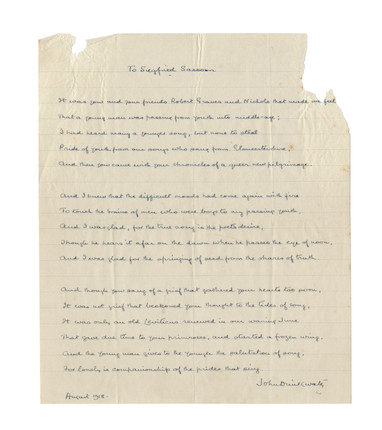 To Siegfried Sassoon
It was you and your friends Robert Graves and Nichols that made me feel
That a young man was passing from youth into middle-age;
I had heard many a younger song, but none to steal
Pride of youth from our songs who sang from Gloucestershire,
And then you came with your chronicles of a queer new pilgrimage.
And I knew that the difficult moods had come again with fire
To the brains of men who were longe to my passing youth,
And I was glad, for the true song is the desire,
Though he hears it afar on the dawn when he passes the eye of noon,
And I was glad for the upspringing of seed from the shares of truth.
And though you sang of a grief that gathered your hearts too soon,
It was not grief that your thought to the tides of song,
It was only an old renewed in our waning June
That gave due time to your primroses, and started a frozen wing.
And the young man gives to the younger the salutation of song,
For lovely is companionship of the prides that sing.
John Drinkwater
August 1918.